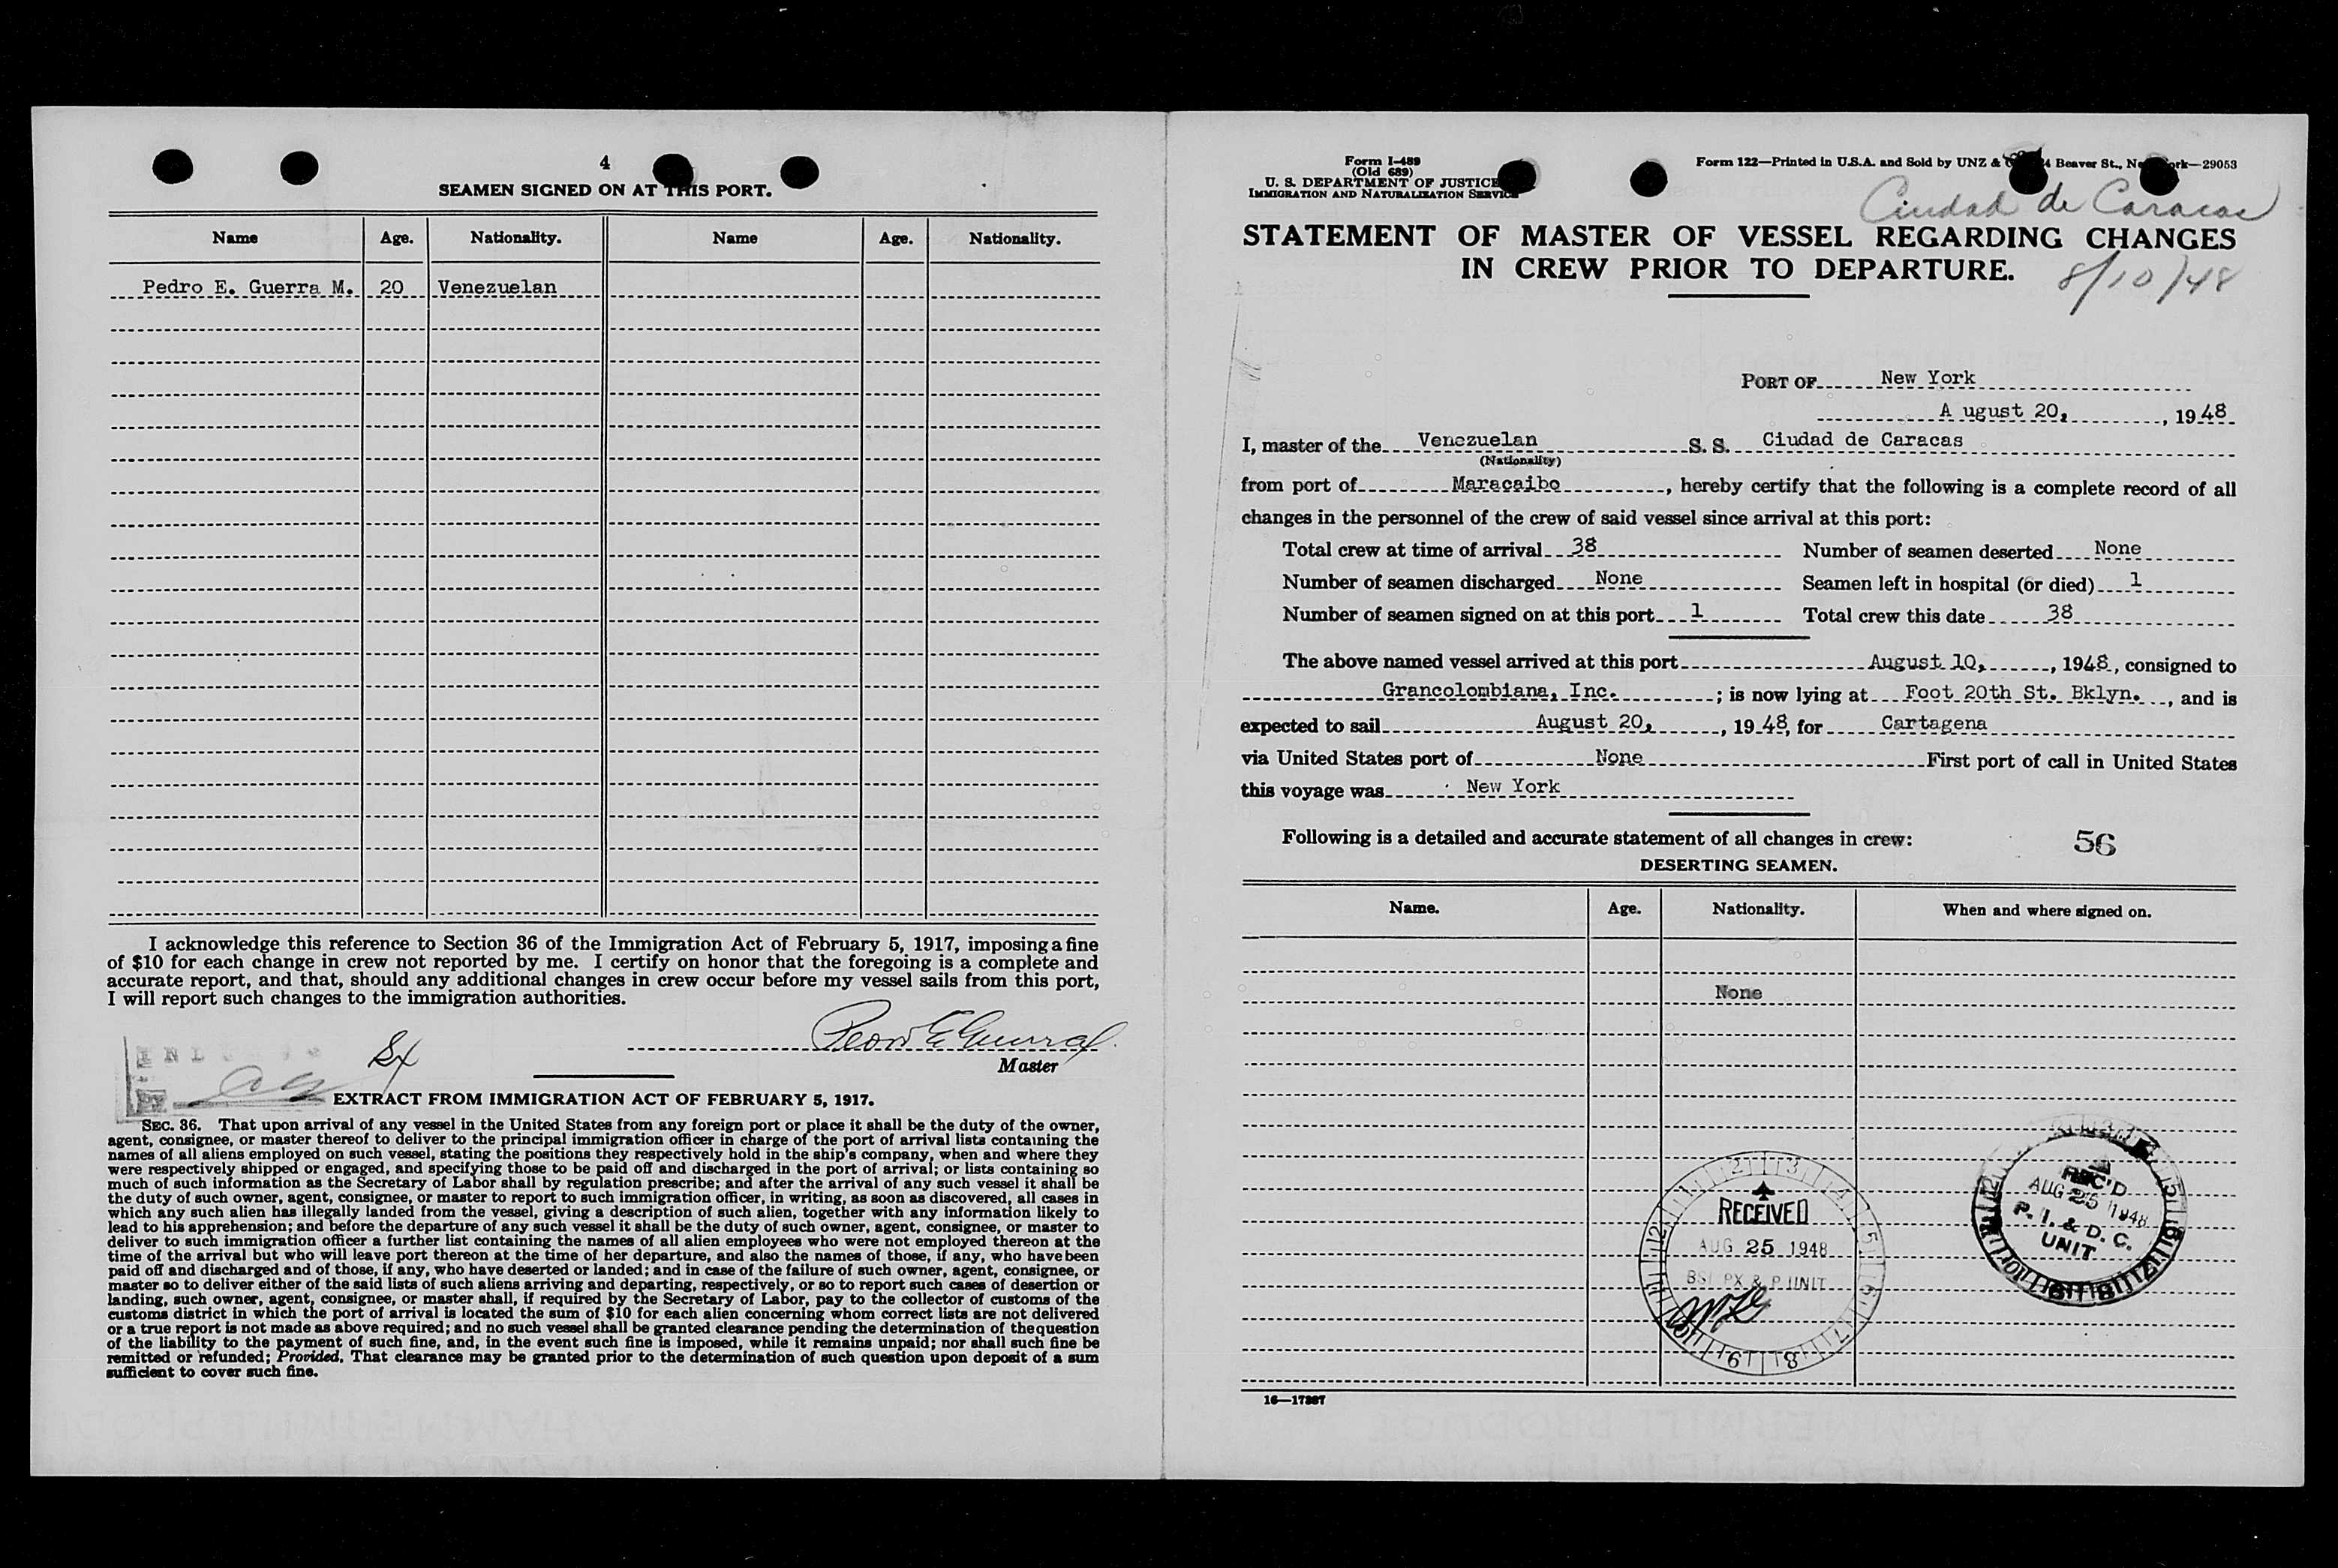 4
SEAMEN SIGNED ON AT THIS PORT.
Name Age. Nationality. Name Age. Nationality.
Pedro E. Guerra M. 20 Venezuelan
I acknowledge this reference to Section 36 of the Immigration Act of February 5, 1917, imposing a fine
of $10 for each change in crew not reported by me. I certify on honor that the foregoing is a complete and
accurate report, and that, should any additional changes in crew occur before my vessel sails from this port,
I will report such changes to the immigration authorities.
Master
EXTRACT FROM IMMIGRATION ACT OF FEBRUARY 5, 1917.
SEC. 36. That upon arrival of any vessel in the United States from any foreign port or place it shall be the duty of the owner,
agent, consignee, or master thereof to deliver to the principal immigration officer in charge of the port of arrival lists containing the
names of all aliens employed on such vessel, stating the positions they respectively hold in the ship's company, when and where they
were respectively shipped or engaged, and specifying those to be paid off and discharged in the port of arrival; or lists containing so
much of such information as the Secretary of Labor shall by regulation prescribe; and after the arrival of any such vessel it shall be
the duty of such owner, agent, consignee, or master to report to such immigration officer, in writing, as soon as discovered, all cases in
which any such alien has illegally landed from the vessel, giving a description of such alien, together with any information likely to
lead to his apprehension; and before the departure of any such vessel it shall be the duty of such owner, agent, consignee, or master to
deliver to such immigration officer a further list containing the names of all alien employees who were not employed thereon at the
time of the arrival but who will leave port thereon at the time of her departure, and also the names of those, if any, who have been
paid off and discharged and of those, if any, who have deserted or landed; and in case of the failure of such owner, agent, consignee, or
master so to deliver either of the said lists of such aliens arriving and departing, respectively, or so to report such cases of desertion or
landing, such owner, agent, consignee, or master shall, if required by the Secretary of Labor, pay to the collector of customs of the
customs district in which the port of arrival is located the sum of $10 for each alien concerning whom correct lists are not delivered
or a true report is not made as above required; and no such vessel shall be granted clearance pending the determination of the question
of the liability to the payment of such fine, and, in the event such fine is imposed, while it remains unpaid; nor shall such fine be
remitted or refunded; Provided, That clearance may be granted prior to the determination of such question upon deposit of a sum
sufficient to cover such fine.
Form I-489
(Old 689)
U. S. DEPARTMENT OF JUSTICE
IMMIGRATION AND NATURALIZATION SERVICE
Form 122—Printed in U.S.A. and Sold by UNZ & Beaver St., New York—29053
Ciudad de Caracas
STATEMENT OF MASTER OF VESSEL REGARDING CHANGES
IN CREW PRIOR TO DEPARTURE.
8/10/48
PORT OF New York
A ugust 20, , 1948
I, master of the Venezuelan S. S. Ciudad de Caracas
(Nationality)
from port of Maracaibo, hereby certify that the following is a complete record of all
changes in the personnel of the crew of said vessel since arrival at this port:
Total crew at time of arrival 38 Number of seamen deserted None
Number of seamen discharged None Seamen left in hospital (or died) 1
Number of seamen signed on at this port 1 Total crew this date 38
The above named vessel arrived at this port August 10, , 1948, consigned to
Grancolombiana, Inc. ; is now lying at Foot 20th St. Bklyn. , and is
expected to sail August 20, , 1948, for Cartagena
via United States port of None First port of call in United States
this voyage was New York
Following is a detailed and accurate statement of all changes in crew: 56
DESERTING SEAMEN.
Name. Age. Nationality. When and where signed on.
None
RECEIVED
AUG 25 1948
BSI PX & P UNIT
REC'D
AUG 25 1948
P. I. & D. C.
UNIT
16—17397